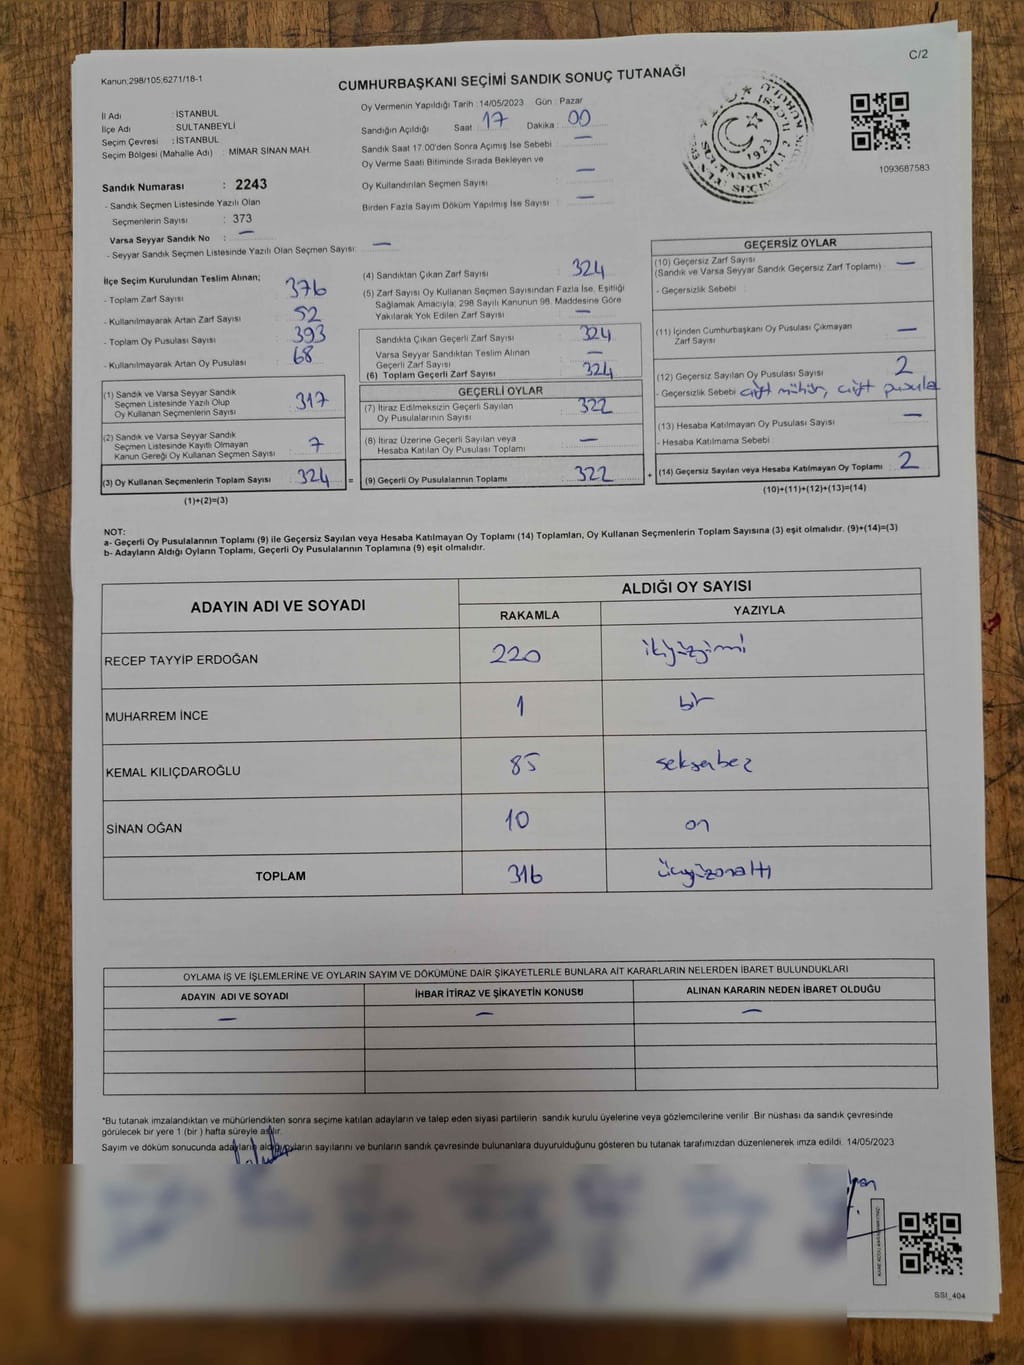 Kanun:298/105;6271/18-1
C/2
CUMHURBAŞKANI SEÇİMİ SANDIK SONUÇ TUTANAĞI
İl Adı : İSTANBUL
İlçe Adı : SULTANBEYLİ
Seçim Çevresi : İSTANBUL
Seçim Bölgesi (Mahalle Adı) : MİMAR SİNAN MAH.
Sandık Numarası : 2243
- Sandık Seçmen Listesinde Yazılı Olan
Seçmenlerin Sayısı : 373
Varsa Seyyar Sandık No : —
- Seyyar Sandık Seçmen Listesinde Yazılı Olan Seçmen Sayısı: —
Oy Vermenin Yapıldığı Tarih : 14/05/2023 Gün : Pazar
Sandığın Açıldığı Saat : 17 Dakika : 00
Sandık Saat 17.00'den Sonra Açımış İse Sebebi : —
Oy Verme Saati Bitiminde Sırada Bekleyen ve
Oy Kullandırılan Seçmen Sayısı : —
Birden Fazla Sayım Döküm Yapılmış İse Sayısı : —
1923
1093687583
İlçe Seçim Kurulundan Teslim Alınan;
- Toplam Zarf Sayısı : 376
- Kullanılmayarak Artan Zarf Sayısı : 52
- Toplam Oy Pusulası Sayısı : 393
- Kullanılmayarak Artan Oy Pusulası : 68
(1) Sandık ve Varsa Seyyar Sandık
Seçmen Listesinde Yazılı Olup
Oy Kullanan Seçmenlerin Sayısı : 317
(2) Sandık ve Varsa Seyyar Sandık
Seçmen Listesinde Kayıtlı Olmayan
Kanun Gereği Oy Kullanan Seçmen Sayısı : 7
(3) Oy Kullanan Seçmenlerin Toplam Sayısı : 324 =
(1)+(2)=(3)
(4) Sandıktan Çıkan Zarf Sayısı : 324
(5) Zarf Sayısı Oy Kullanan Seçmen Sayısından Fazla İse, Eşitliği
Sağlamak Amacıyla; 298 Sayılı Kanunun 98. Maddesine Göre
Yakılarak Yok Edilen Zarf Sayısı : —
Sandıkta Çıkan Geçerli Zarf Sayısı : 324
Varsa Seyyar Sandıktan Teslim Alınan
Geçerli Zarf Sayısı : —
(6) Toplam Geçerli Zarf Sayısı : 324
GEÇERLİ OYLAR
(7) İtiraz Edilmeksizin Geçerli Sayılan
Oy Pusulalarının Sayısı : 322
(8) İtiraz Üzerine Geçerli Sayılan veya
Hesaba Katılan Oy Pusulası Toplamı : —
(9) Geçerli Oy Pusulalarının Toplamı : 322 +
GEÇERSİZ OYLAR
(10) Geçersiz Zarf Sayısı
(Sandık ve Varsa Seyyar Sandık Geçersiz Zarf Toplamı) : —
- Geçersizlik Sebebi :
(11) İçinden Cumhurbaşkanı Oy Pusulası Çıkmayan
Zarf Sayısı : —
(12) Geçersiz Sayılan Oy Pusulası Sayısı : 2
- Geçersizlik Sebebi : çift mühür, çift pusula
(13) Hesaba Katılmayan Oy Pusulası Sayısı : —
- Hesaba Katılmama Sebebi :
(14) Geçersiz Sayılan veya Hesaba Katılmayan Oy Toplamı : 2
(10)+(11)+(12)+(13)=(14)
NOT:
a- Geçerli Oy Pusulalarının Toplamı (9) ile Geçersiz Sayılan veya Hesaba Katılmayan Oy Toplamı (14) Toplamları, Oy Kullanan Seçmenlerin Toplam Sayısına (3) eşit olmalıdır. (9)+(14)=(3)
b- Adayların Aldığı Oyların Toplamı, Geçerli Oy Pusulalarının Toplamına (9) eşit olmalıdır.
ADAYIN ADI VE SOYADI
ALDIĞI OY SAYISI
RAKAMLA YAZIYLA
RECEP TAYYİP ERDOĞAN 220 ikiyüzyirmi
MUHARREM İNCE 1 bir
KEMAL KILIÇDAROĞLU 85 seksenbeş
SİNAN OĞAN 10 on
TOPLAM 316 üçyüzonaltı
OYLAMA İŞ VE İŞLEMLERİNE VE OYLARIN SAYIM VE DÖKÜMÜNE DAİR ŞİKAYETLERLE BUNLARA AİT KARARLARIN NELERDEN İBARET BULUNDUKLARI
ADAYIN ADI VE SOYADI İHBAR İTİRAZ VE ŞİKAYETİN KONUSU ALINAN KARARIN NEDEN İBARET OLDUĞU
— — —
*Bu tutanak imzalandıktan ve mühürlendikten sonra seçime katılan adayların ve talep eden siyasi partilerin sandık kurulu üyelerine veya gözlemcilerine verilir .Bir nüshası da sandık çevresinde
görülecek bir yere 1 (bir ) hafta süreyle asılır.
Sayım ve döküm sonucunda adayların aldığı oyların sayılarını ve bunların sandık çevresinde bulunanlara duyurulduğunu gösteren bu tutanak tarafımızdan düzenlenerek imza edildi. 14/05/2023
SSI_404